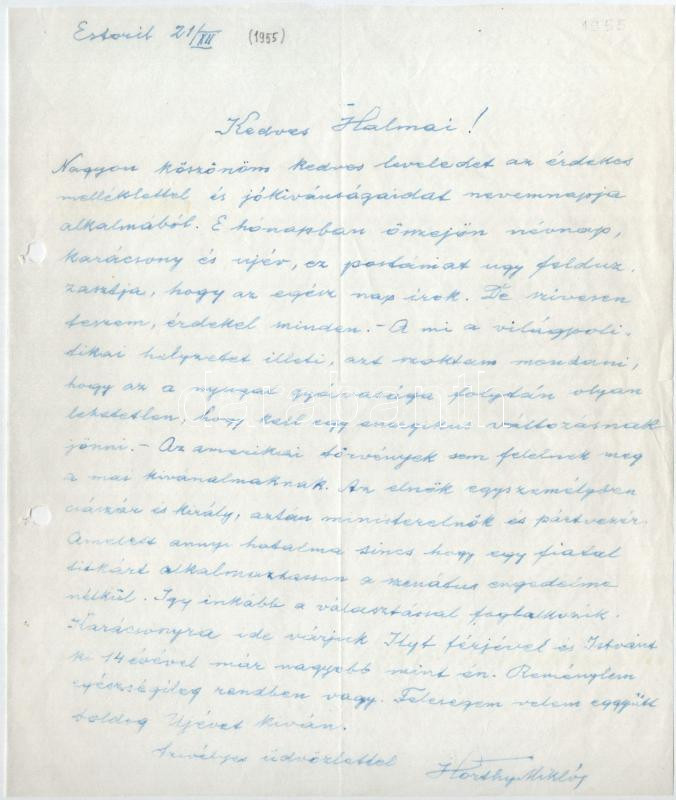 1955
Estoril 21/XII (1955)
Kedves Halmai!
Nagyon köszönöm kedves leveledet az érdekes
melléklettel és jókivánságaidat nevemnapja
alkalmából. E hónapban összejön névnap,
karácsony és ujév, ez postámat ugy felduz.
zasztja, hogy az egész nap irok. De szivesen
teszem, érdekel minden. - A mi a világpoli-
tikai helyzetet illeti, azt szoktam mondani,
hogy az a nyugat gyávasága folytán olyan
lehetetlen, hogy kell egy energikus változásnak
jönni. - Az amerikai törvények sem felelnek meg
a mai kivánalmaknak. Az elnök egyszemélyben
császár és király, aztán miniszterelnök és pártvezér.
Amellett annyi hatalma sincs hogy egy fiatal
titkárt alkalmaztasson a szenátus engedelme
nélkül. Igy inkább a választással foglalkozik.
Karácsonyra ide várjuk Ilyt férjével és Istvánt
ki 14 évével már nagyobb mint én. Remélylem
egészségileg rendben vagy. Feleségem velem eggyütt
boldog Ujévet kiván.
Szivélyes üdvözlettel Horthy Miklós
darabanth